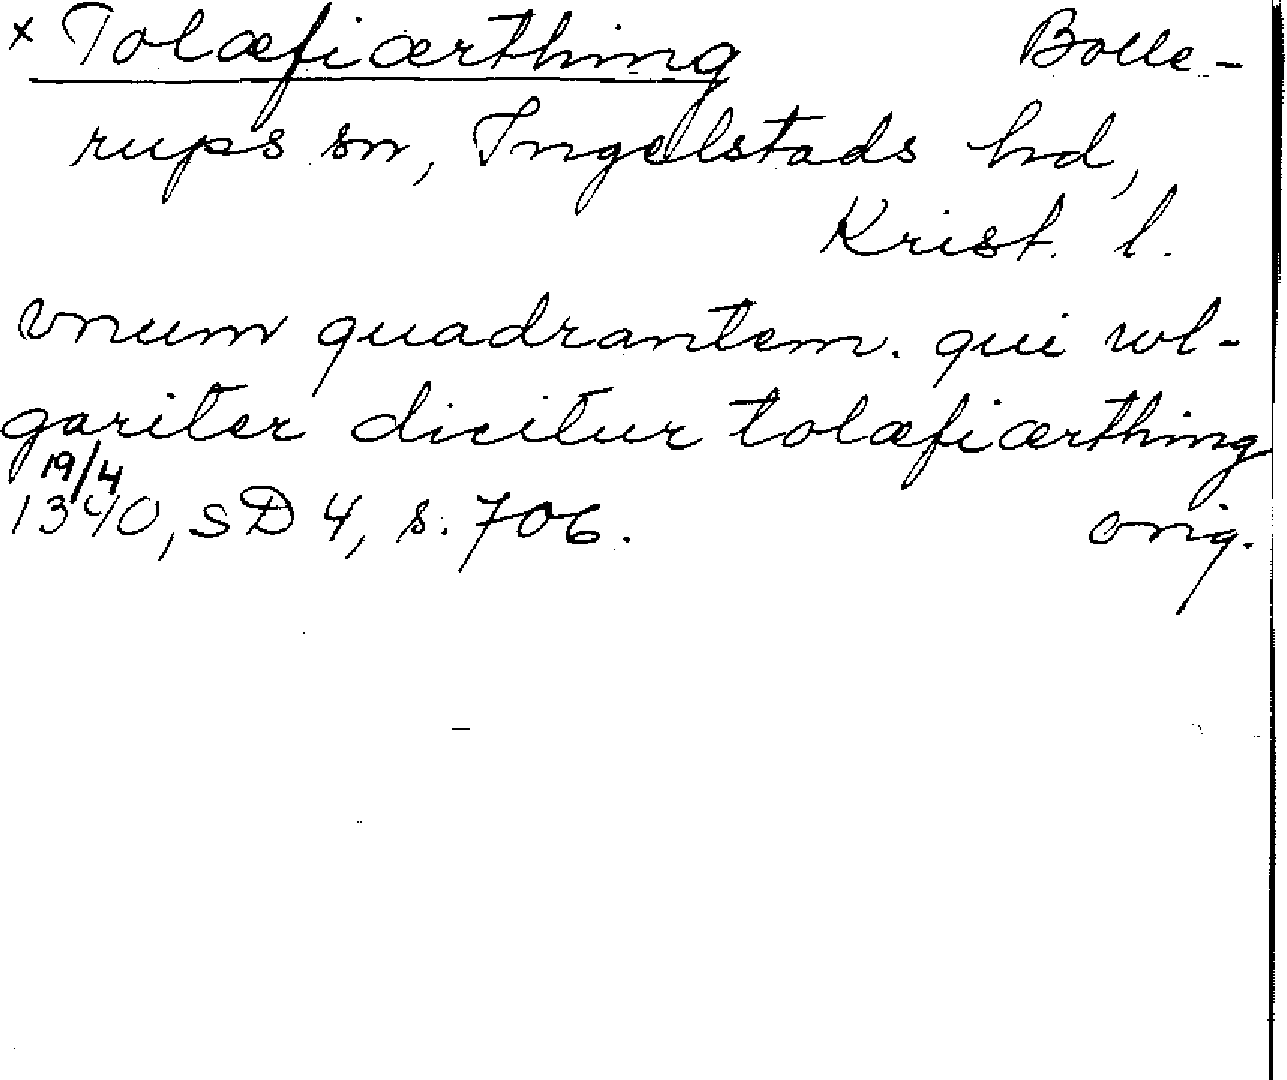 × Tolæfiærthing Bolle-
rups sn, Ingelstads hd,
Krist. l.
vnum quadrantem. qui wl-
gariter dicitur tolæfiærthing
19/4
1340, SD 4, s. 706. orig.